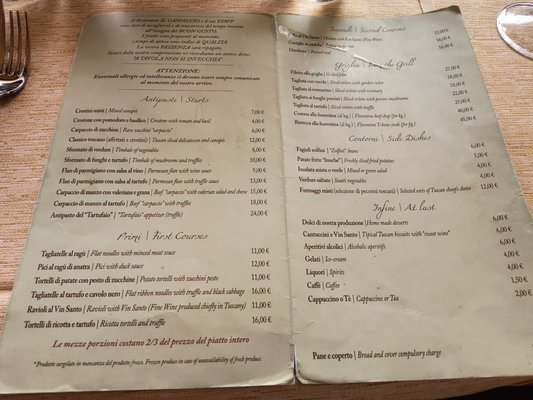 Il Ristorante IL CANNICCIO e il suo STAFF
all'insegna del BUON GUSTO.
I piatti sono preparati al momento,
i tempi di attesa sono indice di QUALITÀ.
La vostra PAZIENZA sarà sempre
"A TAVOLA NON SI INVECCHIA"
ATTENZIONE:
Eventuali allergie od intolleranze si devono sempre comunicare
al momento del vostro arrivo.
Antipasti \ Starts
Crostini misti | Mixed canapes 7,00 €
Crostone con pomodoro e basilico | Crostone with tomato and basil 4,00 €
Carpaccio di zucchine | Raw zucchini "carpaccio" 6,00 €
Classico toscano (affettati e crostini) | Tuscan sliced delicatessen and canapes 12,00 €
Sformato di verdure | Timbale of vegetables 8,00 €
Sformato di funghi e tartufo | Timbale of mushrooms and truffles 10,00 €
Flan di parmigiano con salsa al vino | Parmesan flan with wine sauce 9,00 €
Flan di parmigiano con salsa al tartufo | Parmesan flan with truffle sauce 13,00 €
Carpaccio di manzo con valeriana e grana | Beef "carpaccio" with valerian salad and cheese 15,00 €
Carpaccio di manzo al tartufo | Beef "carpaccio" with truffles 18,00 €
Antipasto del "Tartufaio" | "Tartufaio" appetiser (truffle) 24,00 €
Primi \ First Courses
Tagliatelle al ragù | Flat noodles with minced meat sauce 11,00 €
Pici al ragù di anatra | Pici with duck sauce 12,00 €
Tortelli di patate con pesto di zucchine | Potato tortelli with zucchini pesto 11,00 €
Tagliatelle al tartufo e cavolo nero | Flat ribbon noodles with truffle and black cabbage 16,00 €
Ravioli al Vin Santo | Ravioli with Vin Santo (Fine Wine produced chiefly in Tuscany) 11,00 €
Tortelli di ricotta e tartufo | Ricotta tortelli and truffle 16,00 €
Le mezze porzioni costano 2/3 del prezzo del piatto intero
*Prodotto surgelato in mancanza del prodotto fresco. Frozen produce in case of unavailability of fresh produce.
Secondi \ Second Courses
15,00 €
16,00 €
16,00 €
Griglia \ From the Grill
Filetto alla griglia | Grilled fillet
Tagliata con rucola | Sliced sirloin with garden rocket
Tagliata al rosmarino | Sliced sirloin with rosemary
Tagliata ai funghi porcini | Sliced sirloin with porcini mushrooms
Tagliata al tartufo | Sliced sirloin with truffle
Costata alla fiorentina (al kg.) | Florentine beef chop (for kg.) 40,00 €
Bistecca alla fiorentina (al kg.) | Florentine T-bone steak (for kg.) 45,00 €
Contorni \ Side Dishes
Fagioli zolfini | "Zolfini" beans 6,00 €
Patate fritte "fresche" | Freshly sliced fried potatoes 5,00 €
Insalata mista o verde | Mixed or green salad 4,00 €
Verdure saltate | Sauté vegetables 4,00 €
Formaggi misti (selezione di pecorini toscani) | Selected sorts of Tuscan sheep's cheese 12,00 €
Infine \ At last
Dolci di nostra produzione | Home made desserts 6,00 €
Cantuccini e Vin Santo | Tipical Tuscan biscuits with "sweet wine" 6,00 €
Aperitivi alcolici | Alcoholic aperitifs 6,00 €
Gelati | Ice-cream 4,00 €
Liquori | Spirits 4,00 €
Caffè | Coffee 1,50 €
Cappuccino o Tè | Cappuccino or Tea 2,00 €
Pane e coperto | Bread and cover compulsory charge